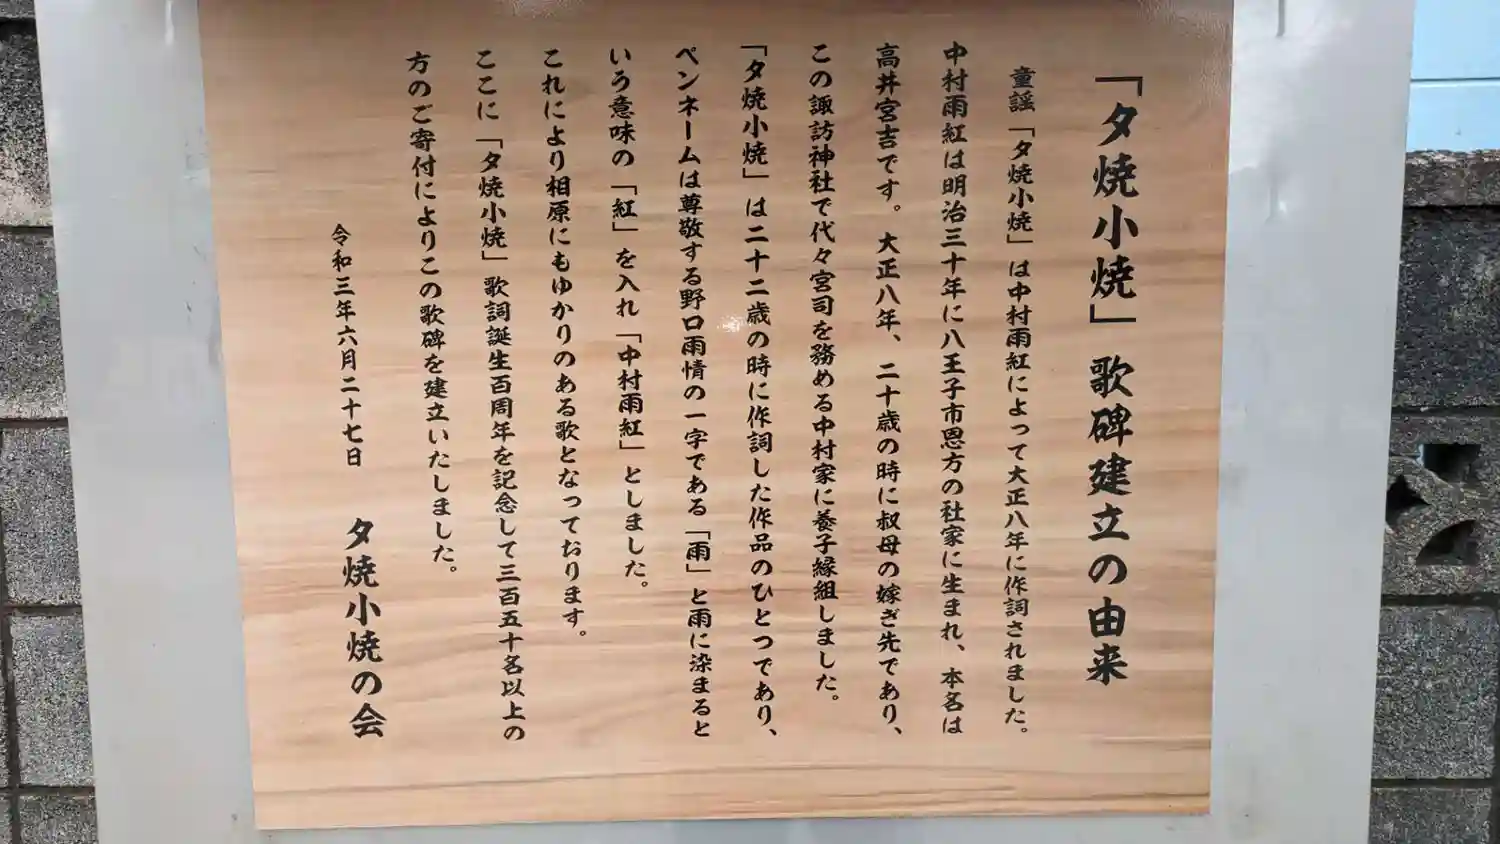 「夕焼小焼」歌碑建立の由来
童謡「夕焼小焼」は中村雨紅によって大正八年に作詞されました。
中村雨紅は明治三十年に八王子市恩方の社家に生まれ、本名は
高井宮吉です。大正八年、二十歳の時に叔母の嫁ぎ先であり、
この諏訪神社で代々宮司を務める中村家に養子縁組しました。
「夕焼小焼」は二十二歳の時に作詞した作品のひとつであり、
ペンネームは尊敬する野口雨情の一字である「雨」と雨に染まると
いう意味の「紅」を入れ「中村雨紅」としました。
これにより相原にもゆかりのある歌となっております。
ここに「夕焼小焼」歌詞誕生百周年を記念して三百五十名以上の
方のご寄付によりこの歌碑を建立いたしました。
令和三年六月二十七日 夕焼小焼の会